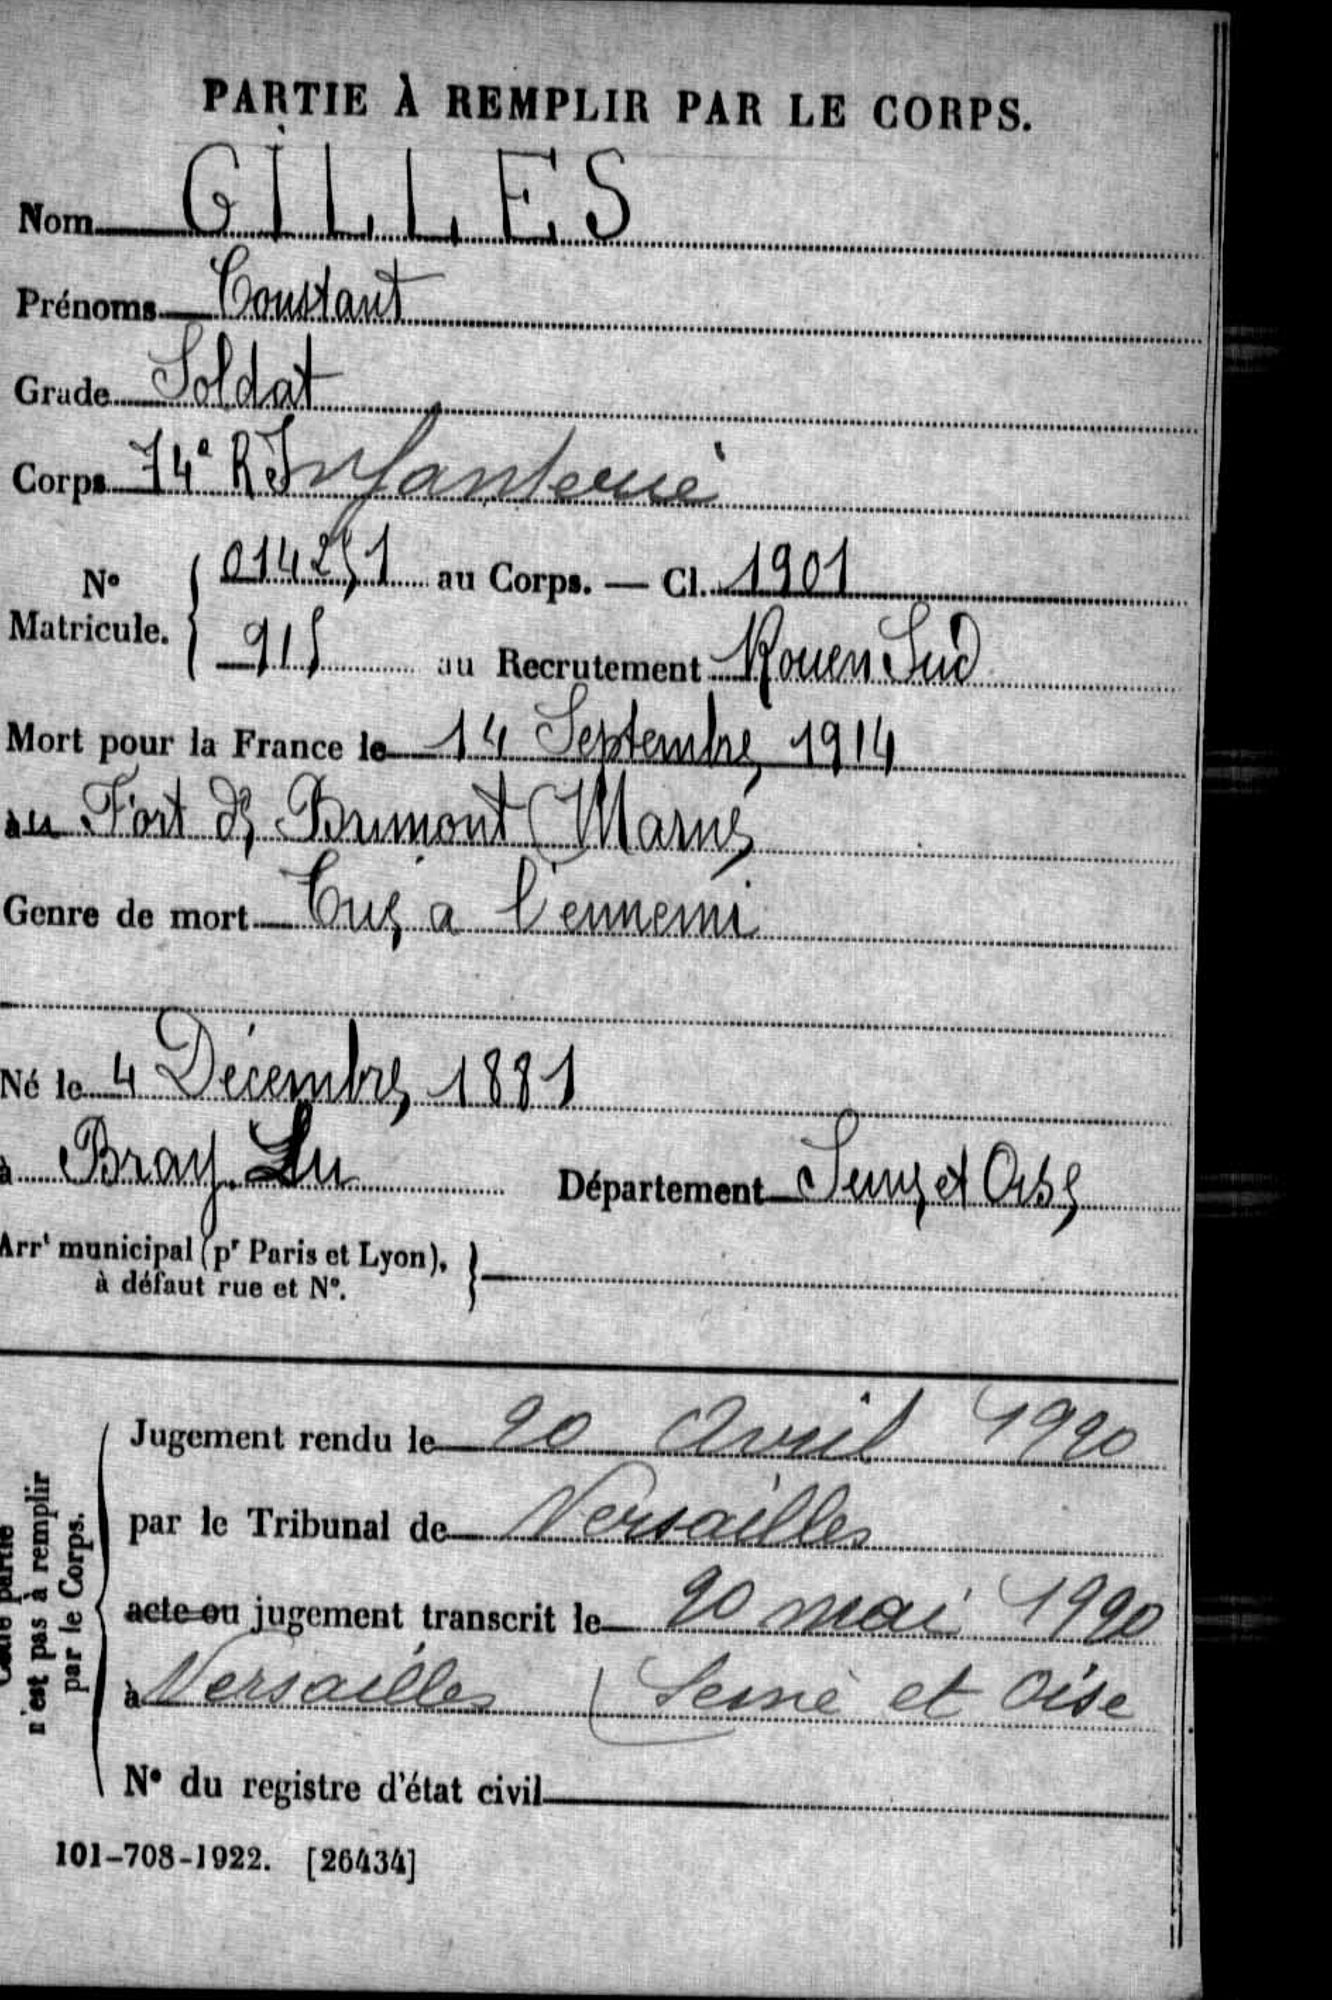 PARTIE À REMPLIR PAR LE CORPS.
Nom GILLES
Prénoms Constant
Grade Soldat
Corps 74e R Infanterie
No Matricule. { 014251 au Corps. — Cl. 1901
915 au Recrutement Rouen Sud
Mort pour la France le 14 Septembre 1914
au Fort de Brimont (Marne
Genre de mort Tué a l'ennemi
Né le 4 Décembre 1881
à Bray-Lu Département Seine et Oise
Arrt municipal (pr Paris et Lyon), }
à défaut rue et No.
Cette partie
n'est pas à remplir
par le Corps.
Jugement rendu le 20 Avril 1920
par le Tribunal de Versailles
acte ou jugement transcrit le 20 mai 1920
à Versailles (Seine et Oise
No du registre d'état civil
101-708-1922. [26434]